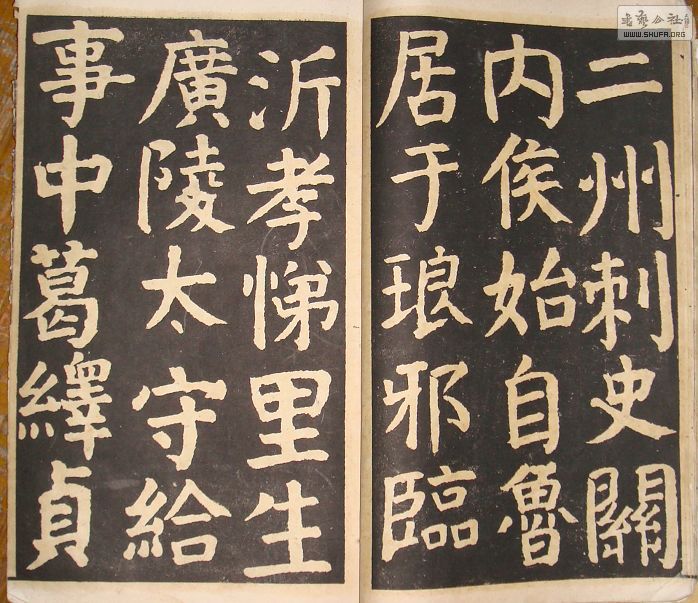 二州刺史關
内侯始自魯
居于琅邪臨
沂孝悌里生
廣陵太守給
事中葛繹貞
书艺公社
WWW.SHUFR.ORG